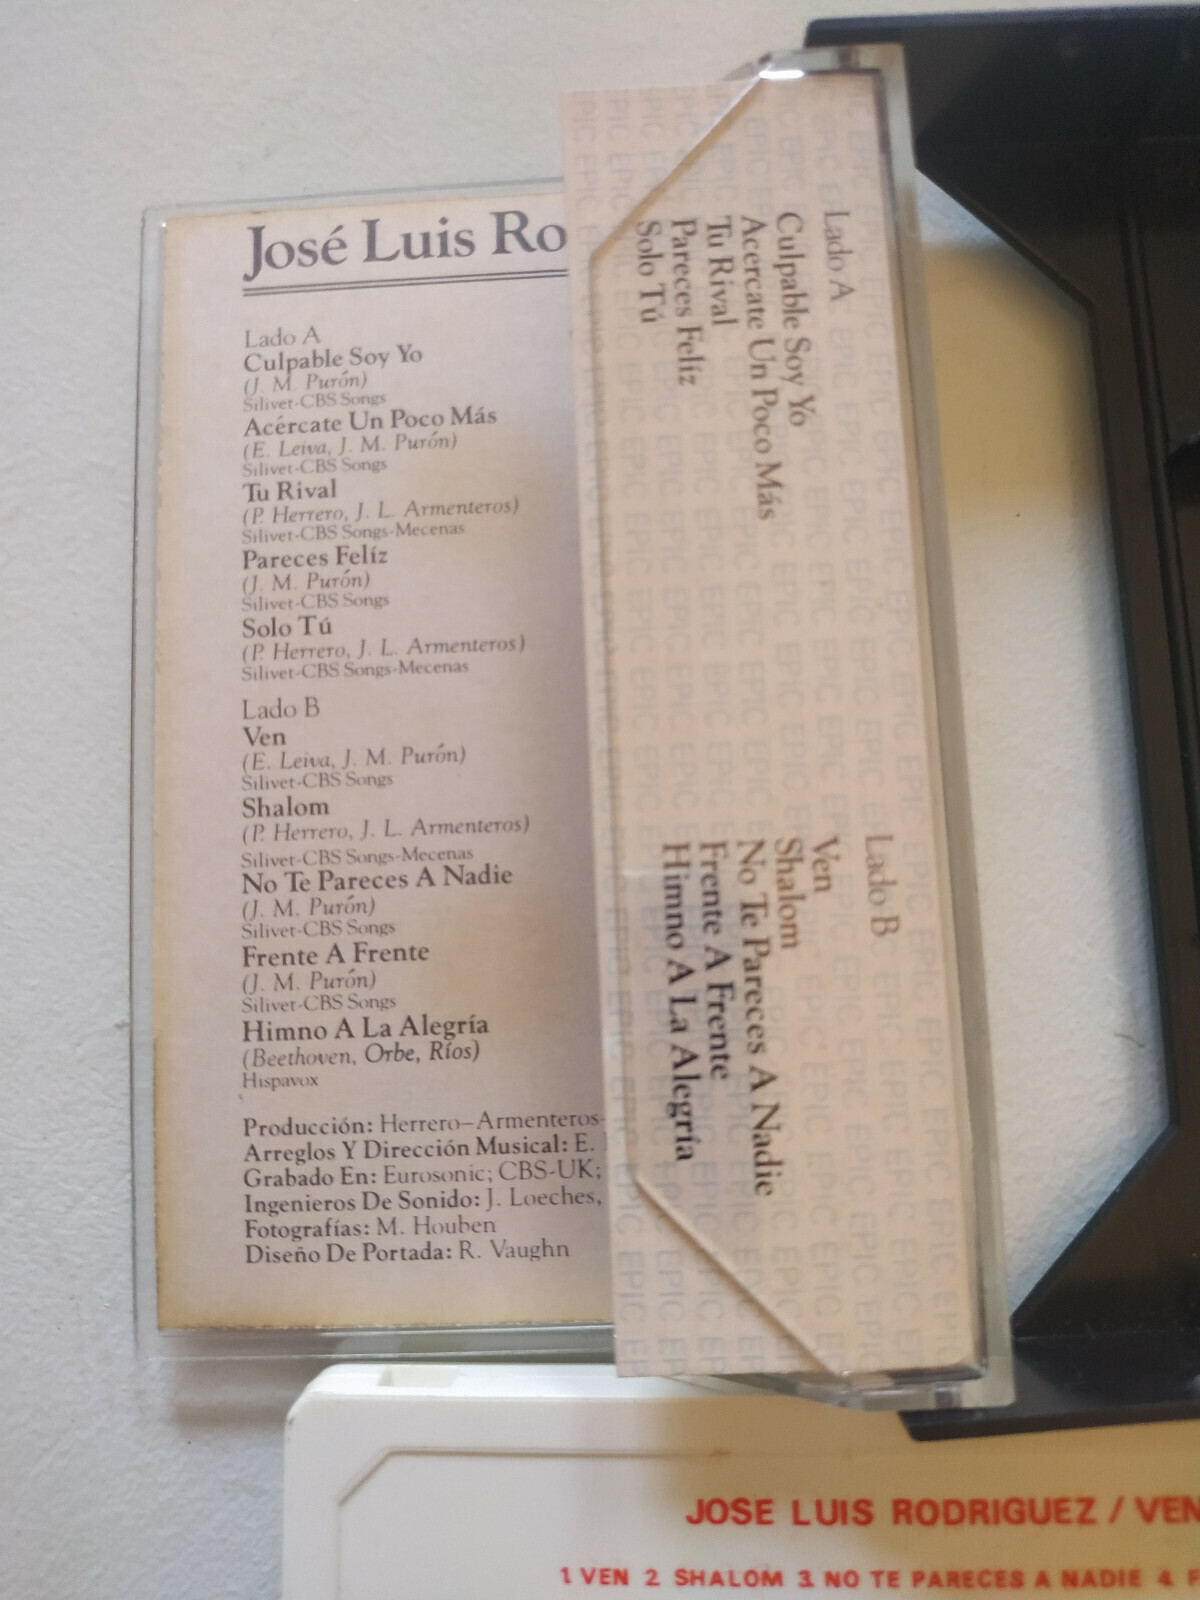 José Luis Ro
Lado A
Culpable Soy Yo
(J. M. Purón)
Silivet-CBS Songs
Acércate Un Poco Más
(E. Leiva, J. M. Purón)
Silivet-CBS Songs
Tu Rival
(P. Herrero, J. L. Armenteros)
Silivet-CBS Songs-Mecenas
Pareces Felíz
(J. M. Purón)
Silivet-CBS Songs
Solo Tú
(P. Herrero, J. L. Armenteros)
Silivet-CBS Songs-Mecenas
Lado B
Ven
(E. Leiva, J. M. Purón)
Silivet-CBS Songs
Shalom
(P. Herrero, J. L. Armenteros)
Silivet-CBS Songs-Mecenas
No Te Pareces A Nadie
(J. M. Purón)
Silivet-CBS Songs
Frente A Frente
(J. M. Purón)
Silivet-CBS Songs
Himno A La Alegría
(Beethoven, Orbe, Ríos)
Hispavox
Producción: Herrero–Armenteros-
Arreglos Y Dirección Musical: E.
Grabado En: Eurosonic; CBS-UK;
Ingenieros De Sonido: J. Loeches,
Fotografías: M. Houben
Diseño De Portada: R. Vaughn
Lado A
Culpable Soy Yo
Acercate Un Poco Más
Tu Rival
Pareces Felíz
Solo Tú
Lado B
Ven
Shalom
No Te Pareces A Nadie
Frente A Frente
Himno A La Alegría
EPIC EPIC EPIC EPIC EPIC EPIC
JOSE LUIS RODRIGUEZ / VEN
1 VEN 2 SHALOM 3 NO TE PARECES A NADIE 4 F